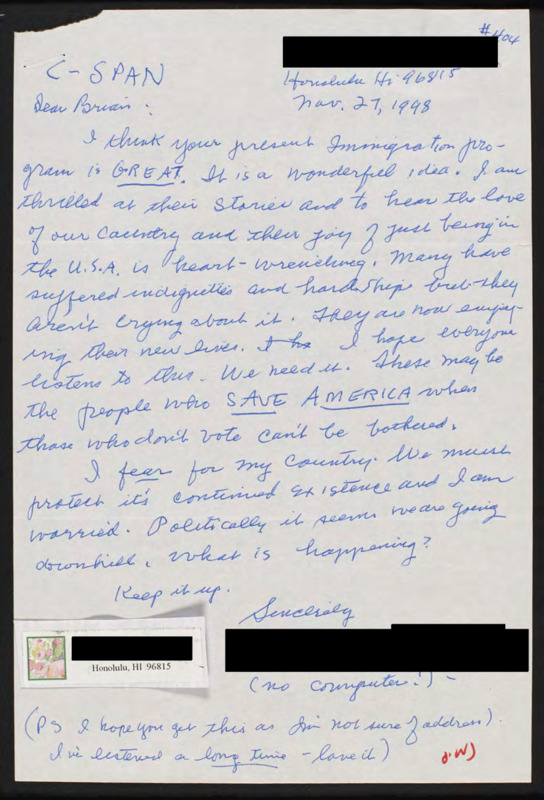 #404
Honolulu Hi 96815
Nov. 27, 1998
C-SPAN
Dear Brian:
I think your present Immigration pro-
gram is GREAT. It is a wonderful idea. I am
thrilled at their stories and to hear the love
of our country and their joy of just being in
the U.S.A. is heart-wrenching. Many have
suffered indignities and hardships but they
aren't crying about it. They are now enjoy-
ing their new lives. I ho I hope everyone
listens to this. We need it. These may be
the people who SAVE AMERICA when
those who don't vote can't be bothered.
I fear for my country. We must
protect it's continued existence and I am
worried. Politically it seems we are going
downhill. What is happening?
Keep it up.
Sincerely
Honolulu, HI 96815
(no computer!) -
(PS I hope you get this as I'm not sure of address).
I've listened a long time - love it)